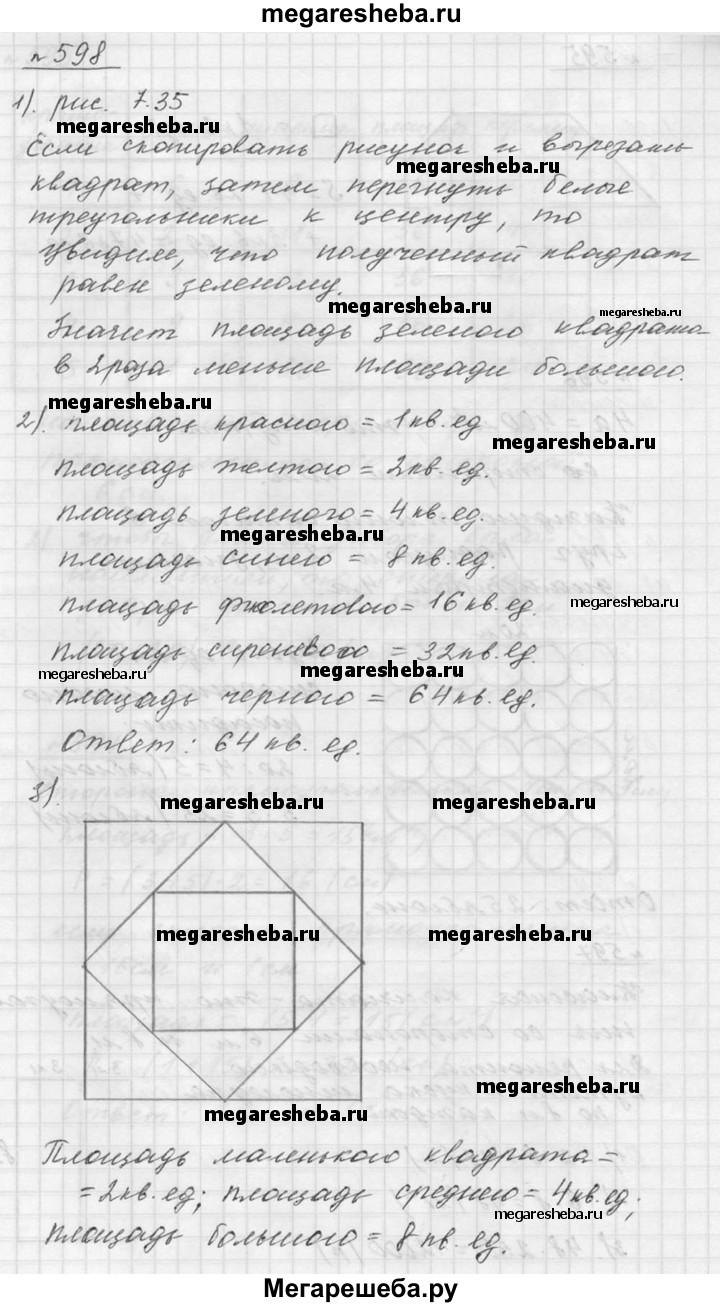 megaresheba.ru
№598
1). рис. 7.35
megaresheba.ru
Если скопировать рисунок и вырезать
megaresheba.ru
квадрат, затем перегнуть белые
треугольники к центру, то
увидим, что полученный квадрат
равен зеленому.
megaresheba.ru
megaresheba.ru
Значит площадь зеленого квадрата
в 2 раза меньше площади большого.
megaresheba.ru
2). площадь красного = 1 кв. ед
megaresheba.ru
площадь желтого = 2 кв. ед.
площадь зеленого = 4 кв. ед.
megaresheba.ru
площадь синего = 8 кв. ед.
площадь фиолетового = 16 кв. ед.
megaresheba.ru
площадь сиреневого = 32 кв. ед.
megaresheba.ru
megaresheba.ru
площадь черного = 64 кв. ед.
Ответ: 64 кв. ед.
3).
megaresheba.ru
megaresheba.ru
megaresheba.ru
megaresheba.ru
megaresheba.ru
megaresheba.ru
Площадь маленького квадрата =
= 2 кв. ед; площадь среднего = 4 кв. ед;
megaresheba.ru
площадь большого = 8 кв. ед.
Мегарешеба.ру